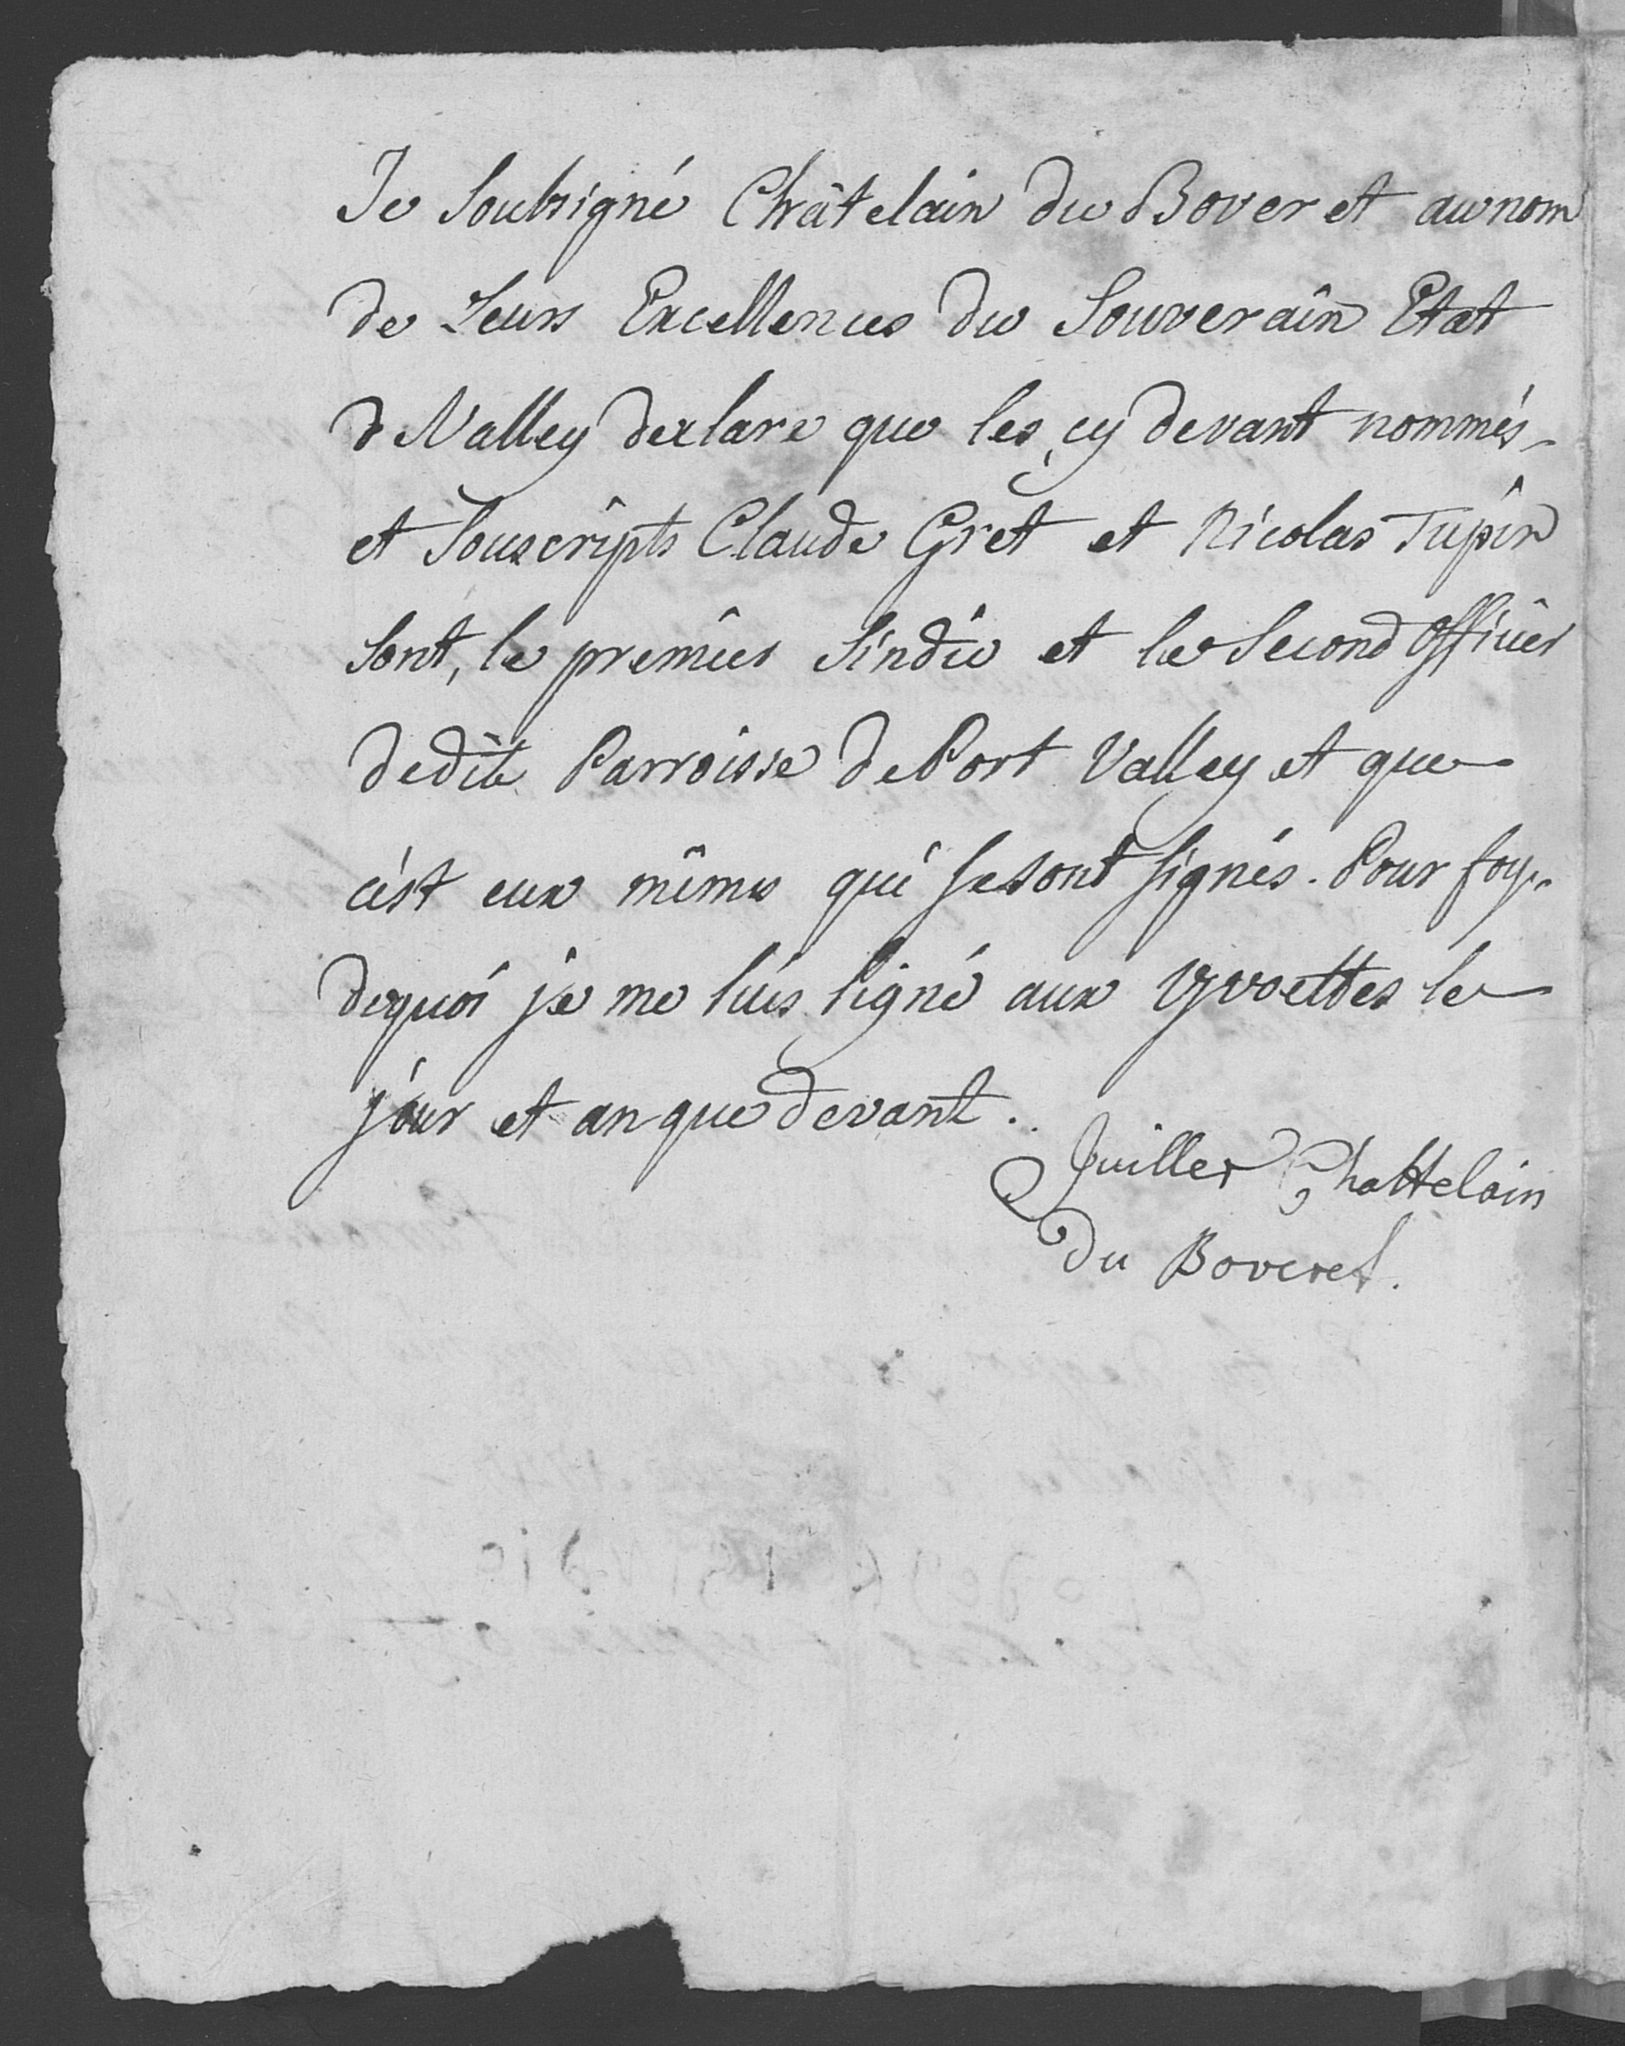 Je Soubsigné Châtelain du Boveret au nom
de Leurs Excellences du Souverain Etat
d Valley declare que les cy devant nommés
et Souscripts Claude Gret et Nicolas Tupin
sont, le premier Sindic et le Second Officier
dedite Parroisse de Port Valley et que
c'est eux mêmes qui se sont signés. Pour foy
dequoi je me suis signé aux Yvoettes le
jour et an que devant.
Juillet Chattelain
du Boveret.